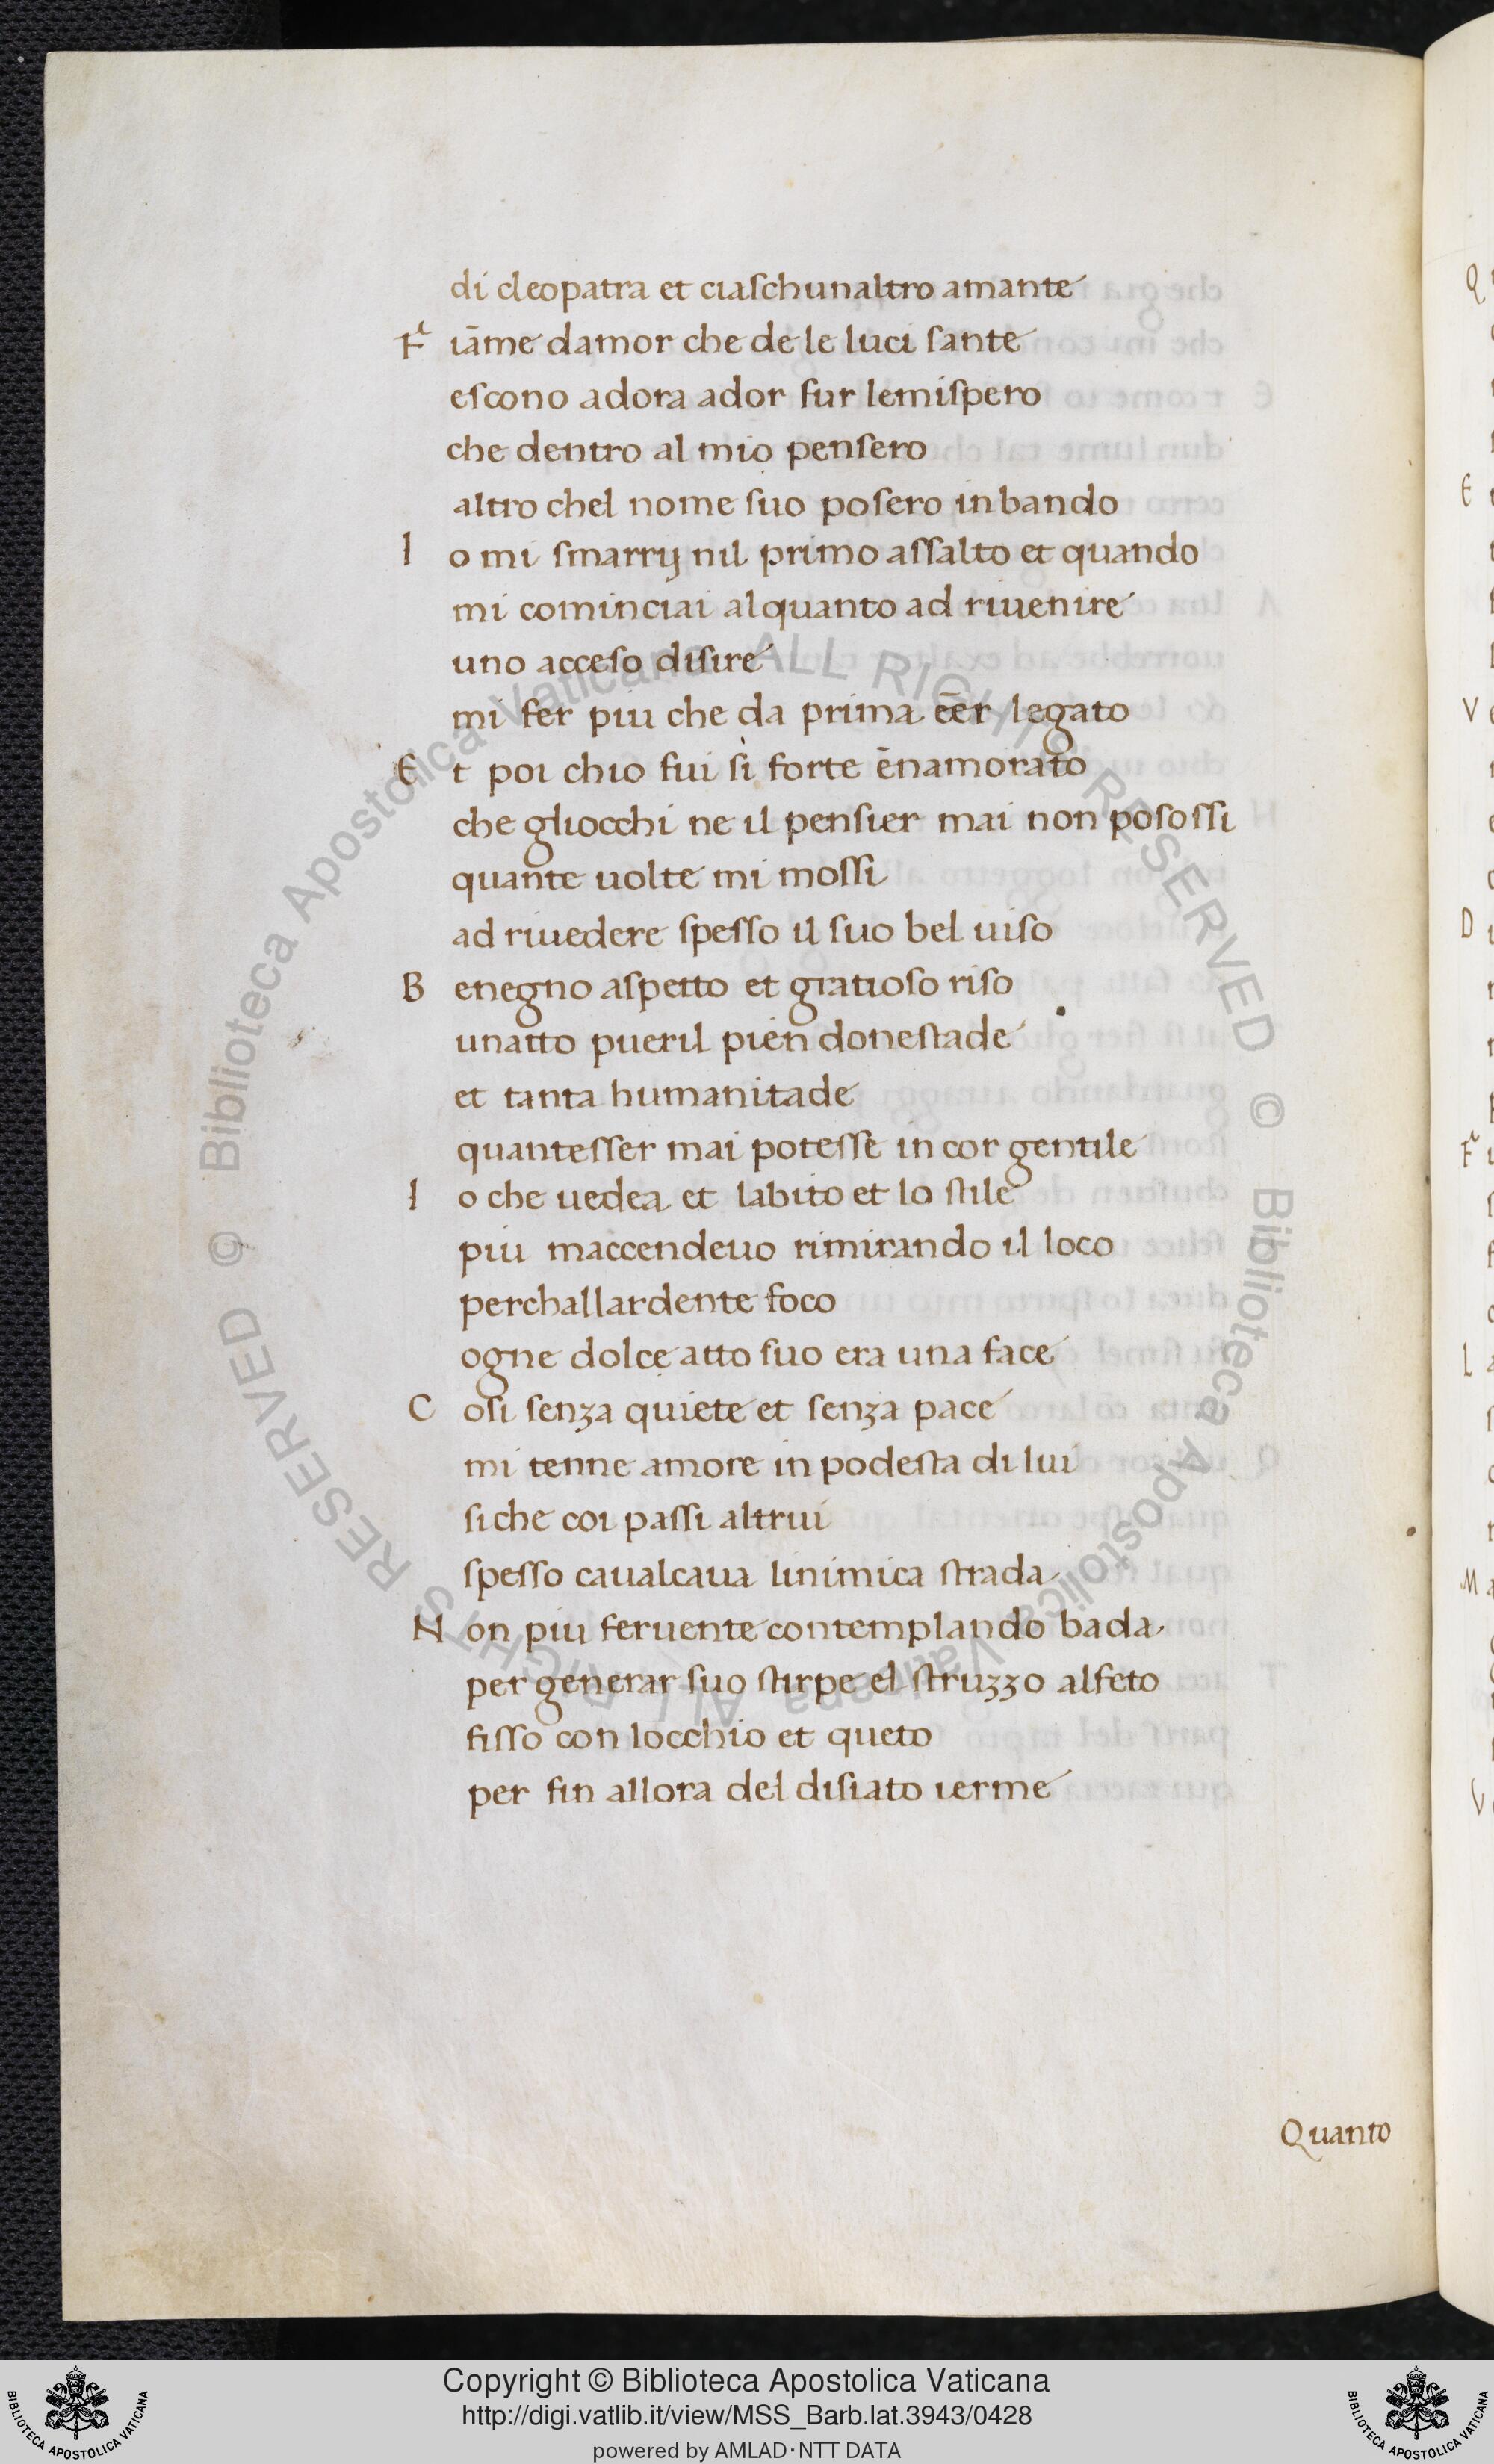 di cleopatra et ciaschunaltro amante
F iāme damor che de le luci sante
escono adora ador fur lemispero
che dentro al mio pensero
altro chel nome suo posero in bando
I o mi smarrij nil primo assalto et quando
mi cominciai alquanto ad riuenire
uno acceso disire
mi fer piu che da prima eēr legato
E t poi chio fui sì forte ēnamorato
che gliocchi ne il pensier mai non posossi
quante uolte mi mossi
ad riuedere spesso il suo bel uiso
B enegno aspetto et gratioso riso
unatto pueril pien donestade
et tanta humanitade
quantesser mai potesse in cor gentile
I o che uedea et labito et lo stile
piu maccendeuo rimirando il loco
perchallardente foco
ogne dolce atto suo era una face
C osi senza quiete et senza pace
mi tenne amore in podesta di lui
siche coi passi altrui
spesso caualcaua linimica strada
N on piu feruente contemplando bada
per generar suo stirpe el struzzo alfeto
fisso con locchio et queto
per fin allora del disiato uerme
Quanto
Copyright © Biblioteca Apostolica Vaticana
http://digi.vatlib.it/view/MSS_Barb.lat.3943/0428
powered by AMLAD·NTT DATA
BIBLIOTECA APOSTOLICA VATICANA
BIBLIOTECA APOSTOLICA VATICANA
Biblioteca Apostolica Vaticana ALL RIGHTS RESERVED ©
Biblioteca Apostolica Vaticana ALL RIGHTS RESERVED ©